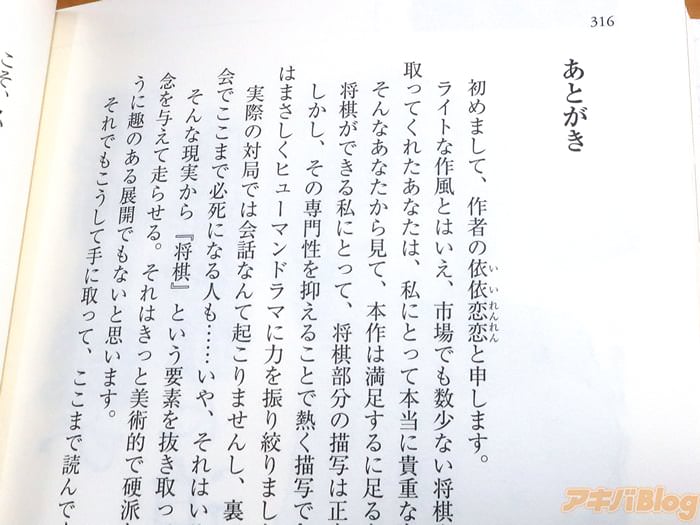 316
あとがき
初めまして、作者の依依恋恋と申します。
いいれんれん
ライトな作風とはいえ、市場でも数少ない将棋
取ってくれたあなたは、私にとって本当に貴重な
そんなあなたから見て、本作は満足するに足る
将棋ができる私にとって、将棋部分の描写は正
しかし、その専門性を抑えることで熱く描写で
はまさしくヒューマンドラマに力を振り絞りまし
実際の対局では会話なんて起こりませんし、裏
会でここまで必死になる人も……いや、それはい
そんな現実から『将棋』という要素を抜き取っ
念を与えて走らせる。それはきっと美術的で硬派
うに趣のある展開でもないと思います。
それでもこうして手に取って、ここまで読んで
こそ、
アキバBlog